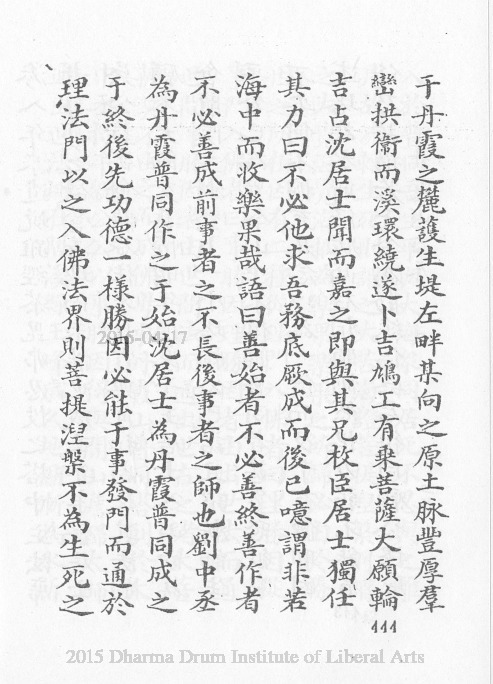 于丹霞之麓護生堤左畔某向之原土脉豐厚羣
巒拱衞而溪環繞遂卜吉鳩工有乗菩薩大願輪
吉占沈居士聞而嘉之即與其兄枚臣居士獨任
其力曰不必他求吾務底厥成而後已噫謂非若
海中而收樂果哉語曰善始者不必善終善作者
不必善成前事者之不長後事者之師也劉中丞
為丹霞普同作之于始沈居士為丹霞普同成之
于終後先功德一樣勝因必能于事發門而通於
理法門以之入佛法界則菩提湼槃不為生死之
444
2015-04-17
2015 Dharma Drum Institute of Liberal Arts